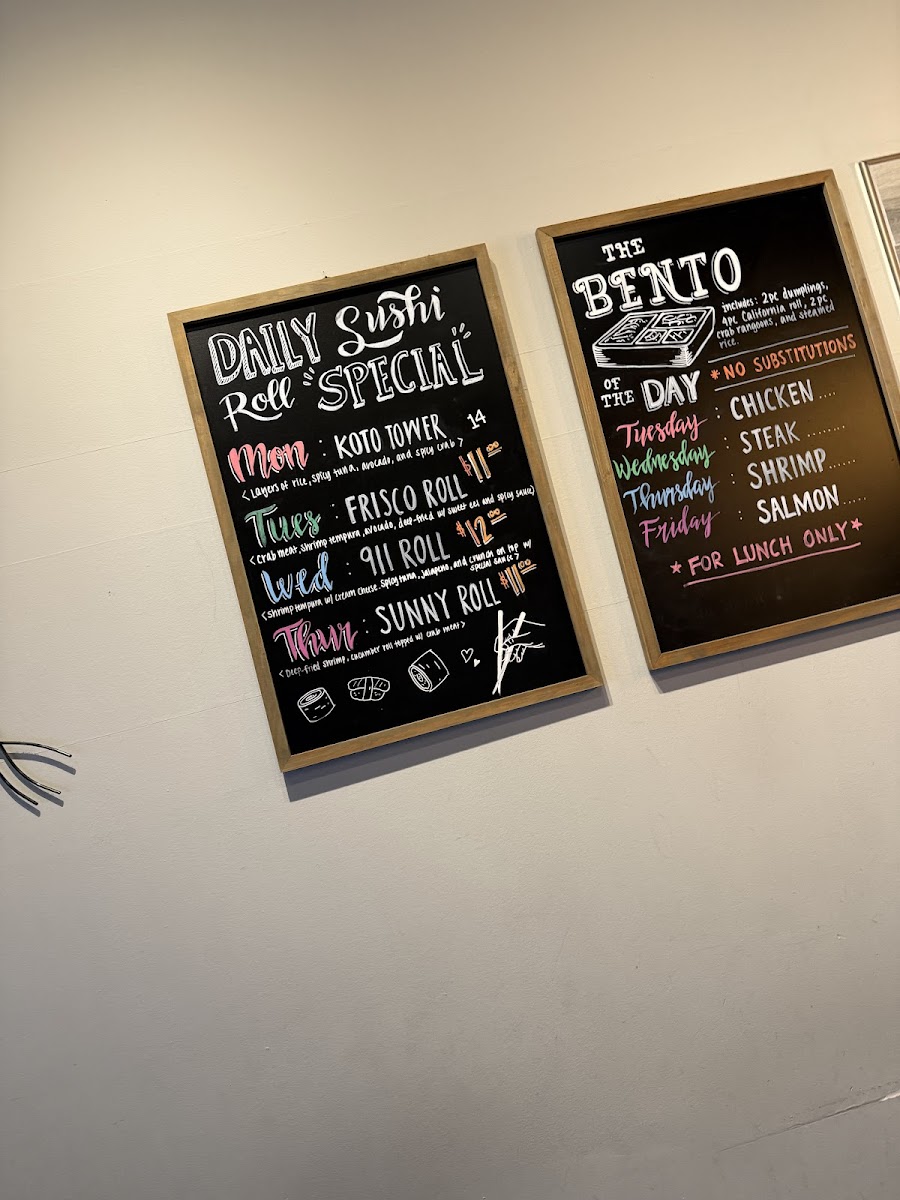 DAILY Sushi
Roll "SPECIAL"
Mon : KOTO TOWER 14
< Layers of rice, spicy tuna, avocado, and spicy crab >
Tues : FRISCO ROLL $11.00
< Crab meat, shrimp tempura, avocado, deep-fried w/ sweet eel and spicy sauce>
Wed : 911 ROLL $12.00
<shrimp tempura w/ cream cheese, spicy tuna, jalapeno, and crunch on top w/
special sauce >
Thur : SUNNY ROLL $11.00
< Deep-fried shrimp, cucumber roll topped w/ crab meat >
THE
BENTO
includes: 2pc dumplings,
4pc California roll, 2pc
crab rangoons, and steamed
rice.
OF
THE DAY
*NO SUBSTITUTIONS
Tuesday : CHICKEN ....
Wednesday : STEAK ........
Thursday : SHRIMP ......
Friday : SALMON .....
*FOR LUNCH ONLY*